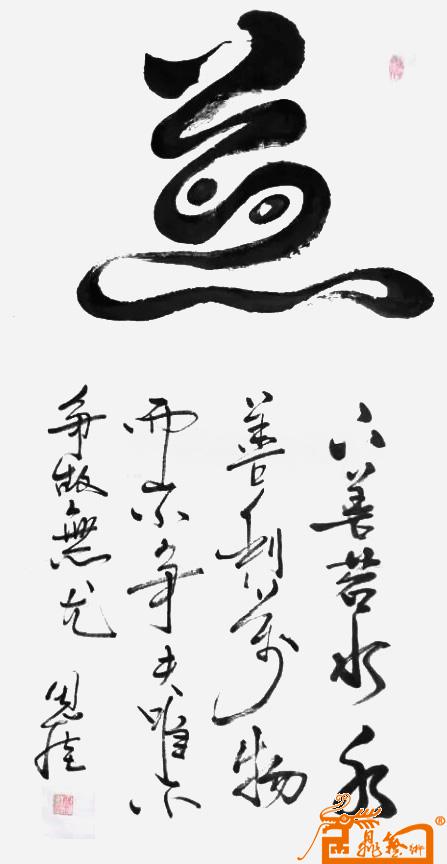 上善若水水
善利萬物
而不争夫唯不
争故無尤